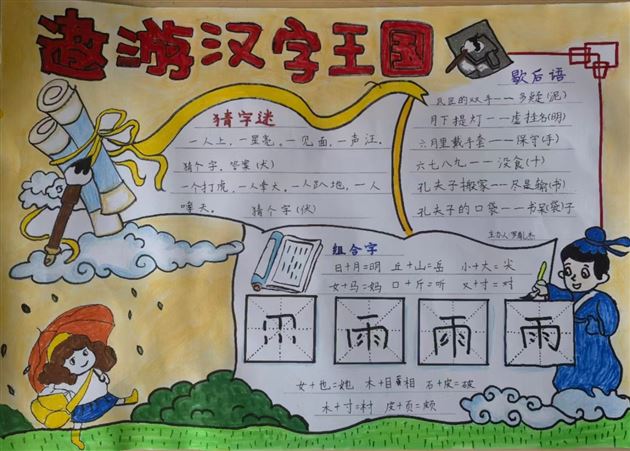 遨游汉字王国
猜字迷
一人上,一里亮,一见面,一声汪,
猜个字,答案(伏)
一个打虎,一人拿大,一人趴地,一人
哮天。 猜个字(伏)
歇后语
的双手一一多疑(泥)
月下提灯一一虚挂名(明)
六月里戴手套一一保守(手)
六七八九一一没食(十)
孔夫子搬家一一尽是输(书)
孔夫子的口袋一一书呆(袋)子
主办人
组合字
日+月=明 丘+山=岳 小+大=尖
女+马=妈 口+斤=听 又+寸=对
雨 雨 雨
女+也=她 木+目=相 石+皮=破
木+寸=村 皮+页=颇